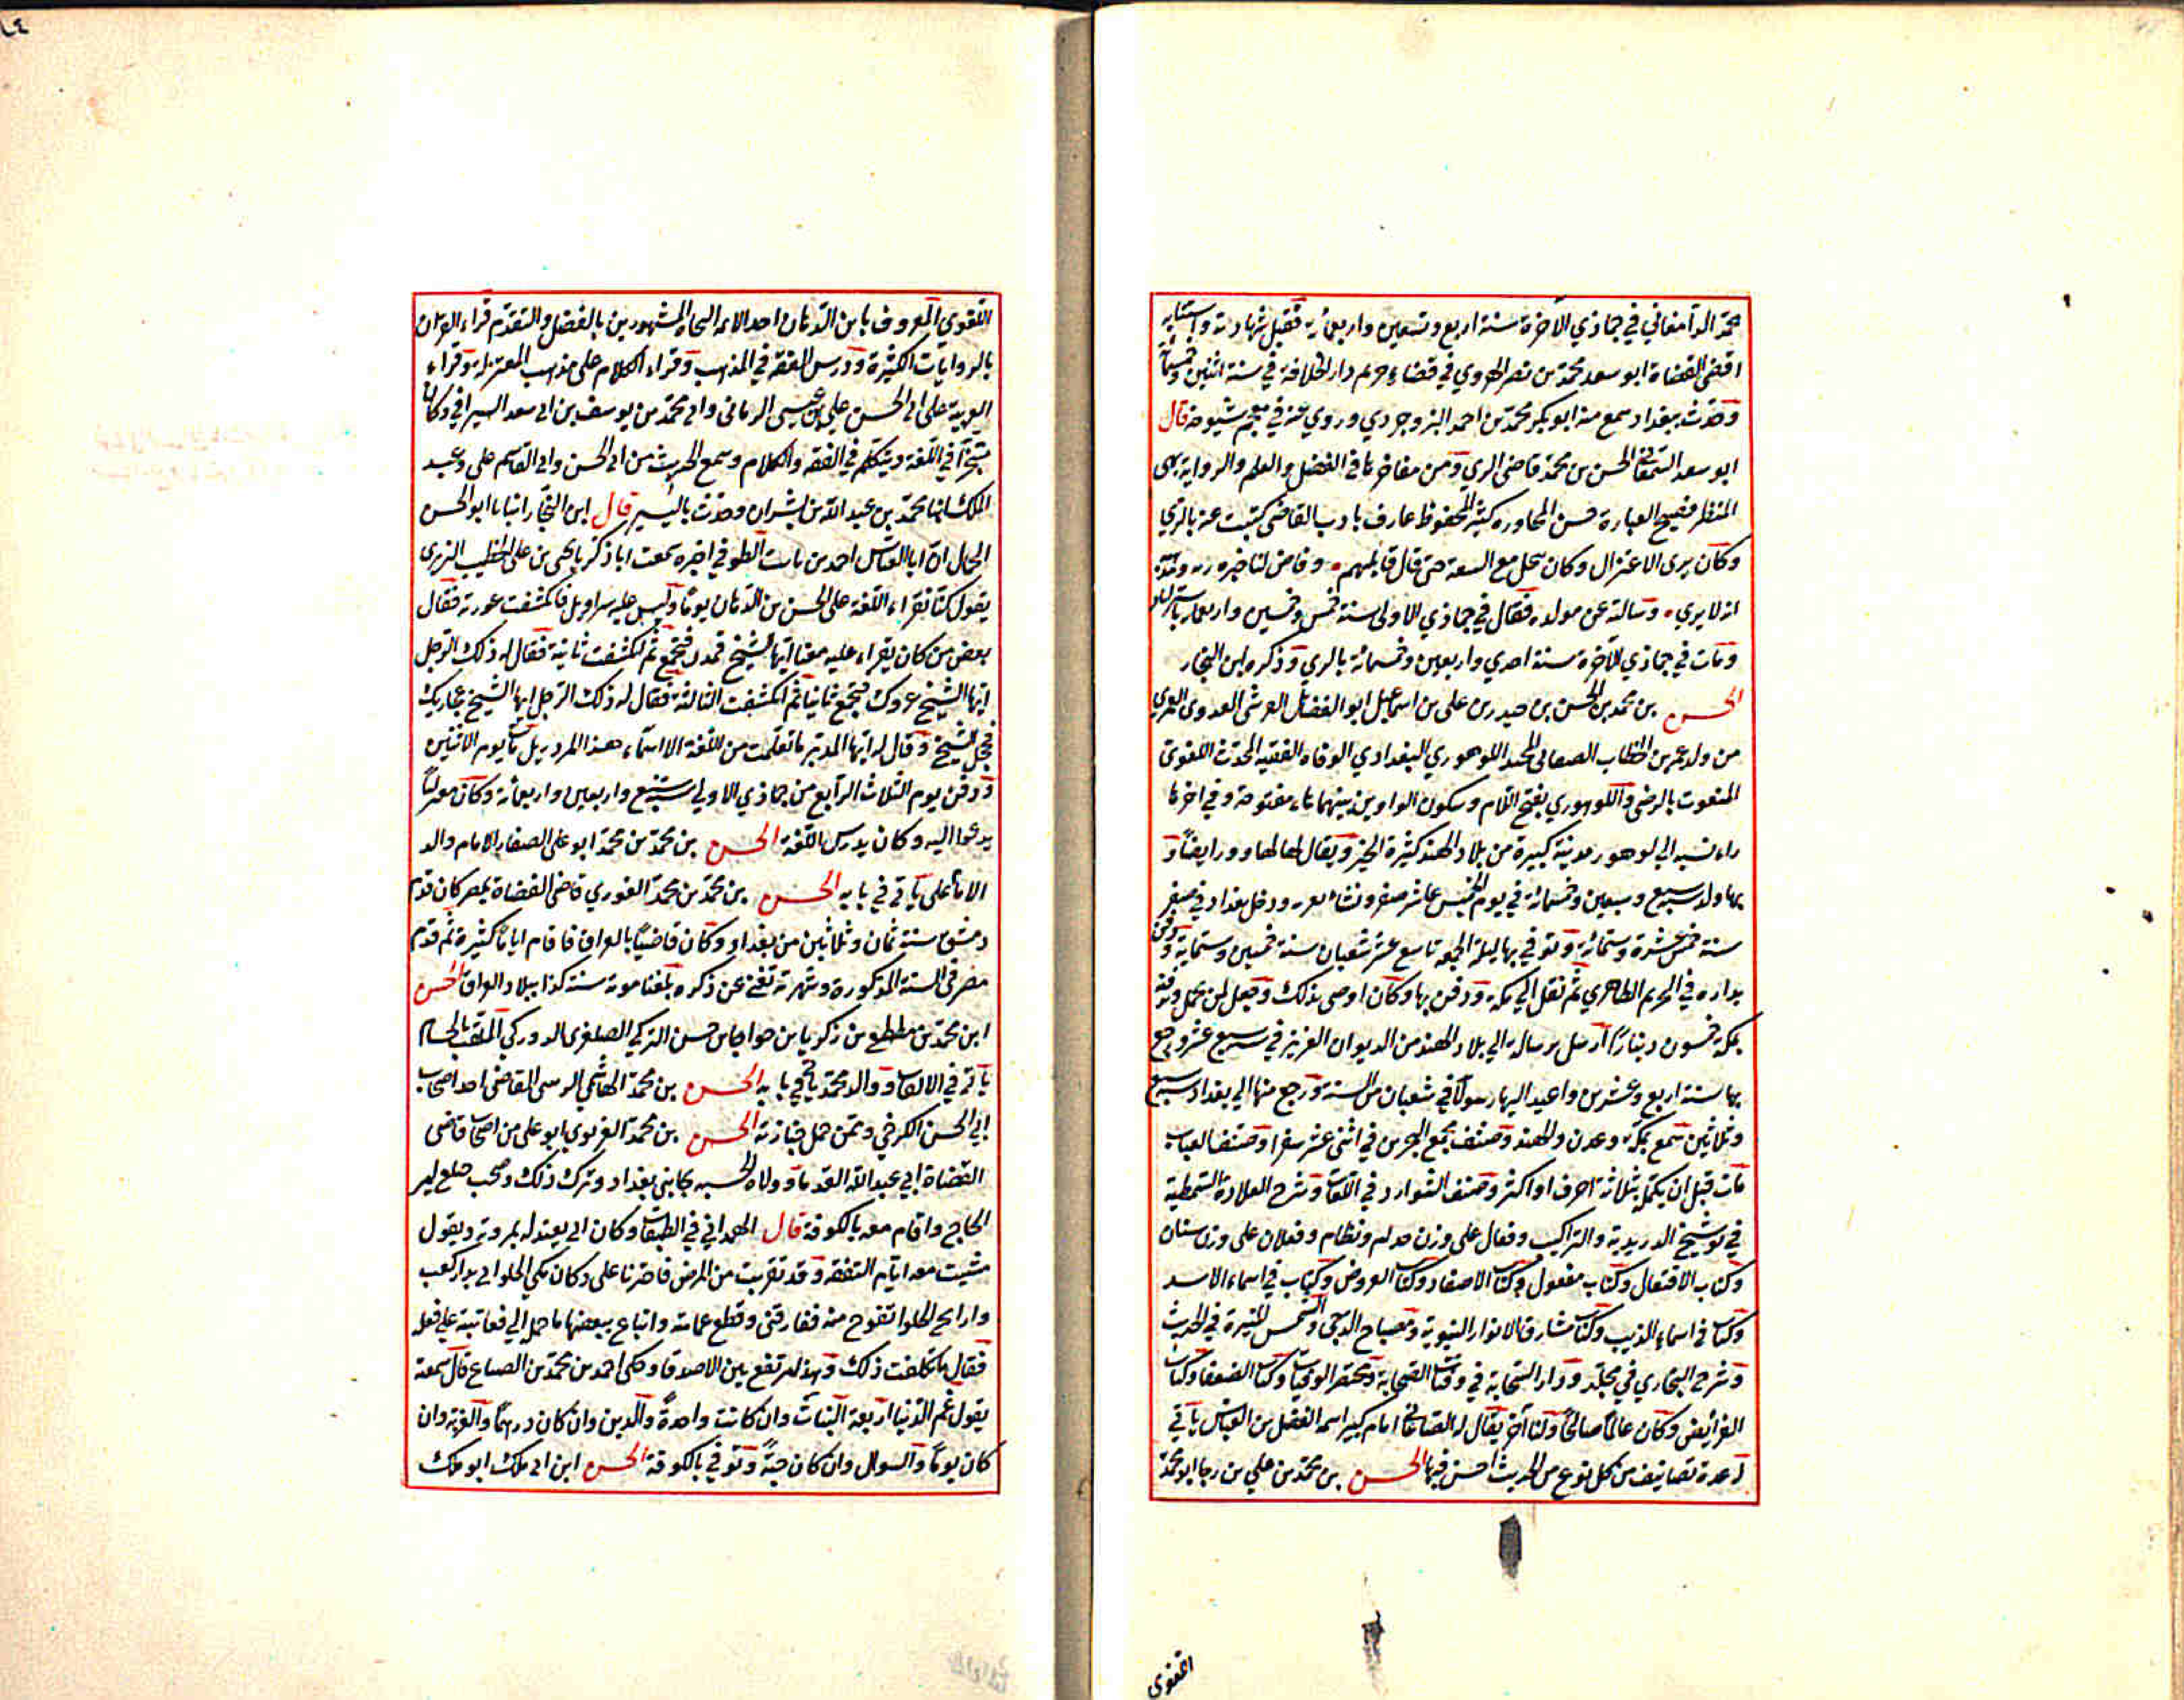 محمد الدامغاني في جماذي الآخرة سنة اربع وتسعين واربعمائة فقبل شهادته واستنابه
اقضى القضاة ابو سعد محمد بن نصر الهروي في قضاء حريم دار الخلافة في سنة اثنين وخمسمائة
وحدّث ببغداد سمع منه ابو بكر محمد بن احمد البروجردي وروي عنه في معجم شيوخه قال
ابو سعد السمعاني الحسن بن محمد قاضي الري ومن مفاخرها في الفضل والعلم والرواية بهي
المنظر فصيح العبارة حسن المحاورة كثير المحفوظ عارف بادب القاضي كتبت عنه بالري
وكان يرى الاعتزال وكان يبخل مع السعة حتى قال قائلهم وقاض لنا خبزه ربه ومذهبه
انه لا يري وسألته عن مولده فقال في جماذي الاولى سنة خمس وخمسين واربعمائة
ومات في جماذي الآخرة سنة احدي واربعين وخمسمائة بالري وذكره ابن النجار
الحسن بن محمد بن الحسن بن حيدر بن علي بن اسماعيل ابو الفضائل القرشي العدوي العمري
من ولد عمر بن الخطاب الصغاني المحتد اللوهوري البغدادي الوفاه الفقيه المحدث اللغوي
المنعوت بالرضي واللوهوري بفتح اللام وسكون الواوين بينهما هاء مفتوحة وفي اخرها
راء نسبه الي لوهور مدينة كبيرة من بلاد الهند كثيرة الخير ويقال لها لهاوور ايضاً و
بها ولد سبع وسبعين وخمسمائة في يوم الخميس عاشر صفر ونشأ بغزنه ودخل بغداد في صفر
سنة خمس عشرة وستمائة وتوفي بها ليلة الجمعه تاسع عشر شعبان سنة خمسين وستماية ودفن
بداره في الحريم الطاهري ثم نقل الي مكة ودفن بها وكان اوصى بذلك وجعل لمن يحمله ويدفنه
بمكة خمسون ديناراً ارسل برسالة الي بلاد الهند من الديوان العزيز في سبع عشر ورجع
بها سنة اربع وعشرين واعيد اليها رسولاً في شعبان من السنة ورجع منها الي بغداد سبع
وثلاثين سمع بمكة وعدن والهند وصنف مجمع البحرين في اثني عشر سفرا وصنف العباب
مات قبل ان يكمله بثلاثة احرف او اكثر وصنف الشوارد في اللغات وشرح القلادة السمطية
في توشيخ الدريدية والتراكيب وفعال على وزن حذام ونظام وفعلان على وزن سنان
وكتاب الافتعال وكتاب مفعول وكتاب الاصفاد وكتاب العروض وكتاب في اسماء الاسد
وكتاب في اسماء الذيب وكتاب مشارق الانوار النبوية ومصباح الدجى والشمس المنيرة في الحديث
وشرح البخاري في مجلد ودار السحابة في وفيات الصحابة ومختصر الوفيات وكتاب الضعفا وكتاب
الفرائض وكان عالما صالحا ولنا آخر يقال له الصاغاني امام كبير اسمه الفضل بن العباس يأتي
له عدة تصانيف من كل نوع من الحديث احسن فيها الحسن بن محمد بن علي بن رجا ابو محمد
اللغوي
اللغوي المعروف بابن الدهان احد الائمه النحاة المشهورين بالفضل والتقدم قراء القرآن
بالروايات الكثيرة ودرس الفقه في المذهب وقراء الكلام على مذهب المعتزلة وقراء
العربية على ابي الحسن علي بن عيسى الرماني وابي محمد بن يوسف بن ابي سعد السيرافي وكان
متبحراً في اللغة ويتكلم في الفقه والكلام وسمع الحديث من ابي الحسن وابي القاسم علي وعبد
الملك ابنا محمد بن عبد الله بن بشران وحدث باليسير قال ابن النجار انبانا ابو الحسن
الحال ان ابا العباس احمد بن بابت الطوفي اخبره سمعت ابا زكريا يحيى بن علي الخطيب التبريزي
يقول كنا نقراء اللغة على الحسن بن الدهان يوماً وليس عليه سراويل فانكشفت عورته فقال
بعض من كان يقراء عليه معنا ايها الشيخ قمدك فتجمع ثم انكشفت ثانية فقال له ذلك الرجل
ايها الشيخ عردك فتجمع ثانيا ثم انكشفت الثالثة فقال له ذلك الرجل ايها الشيخ عجاردك
فخجل الشيخ وقال له ايها المدبر ما تعلمت من اللغة الا اسماء هذا المردريل مات يوم الاثنين
ودفن يوم الثلاث الرابع من جماذي الاولي سنة سبع واربعين واربعمائة وكان معتزلياً
يدعوا اليه وكان يدرس اللغة الحسن بن محمد بن محمد ابو علي الصفار الامام والد
الامام علي يأتي في بابه الحسن بن محمد بن محمد الغوري قاضي القضاة بمصر كان قدم
دمشق سنة ثمان وثلاثين من بغداد وكان قاضياً بالعراق فاقام اياماً كثيرة ثم قدم
مصر في السنة المذكورة وشهرته تغني عن ذكره بلغنا موته سنة كذا ببلاد العراق الحسن
ابن محمد بن مطلع بن زكريا بن حواجا بن حسن التركي الصلغري الدوركي الملقب بالحسام
يأتي في الالقاب ووالد محمد يأتي في بابه الحسن بن محمد الهاشمي الرسي القاضي احد اصحاب
ابي الحسن الكرخي وممن حمل جنازته الحسن بن محمد الغزنوي ابو علي من اصحاب قاضي
القضاة ابي عبد الله القدما وولاه الحسبه بجانبي بغداد وترك ذلك وصحب صلع امير
الحاج واقام معه بالكوفة قال الهمداني في الطبقات وكان ابي يعتد له بمروته ويقول
مشيت معه ايام التفقه وقد تقربت من المرض فاجتزنا على دكان مكي الحلواني بدار كعب
وارايح الحلوا تفوح منه ففارقني وقطع عمامته وابتاع ببعضها ما حمله الي فعاتبته على فعله
فقال ما تكلفت ذلك وهذا لم تقع بين الاصدقا وحكى احمد بن محمد بن الصباغ قال سمعته
يقول غم الدنيا اربعة البنات وان كانت واحدة والدين وان كان درهما والغربة وان
كان يوماً والسوال وان كان حبةً وتوفي بالكوفة الحسن ابن ابي ملك ابو ملك